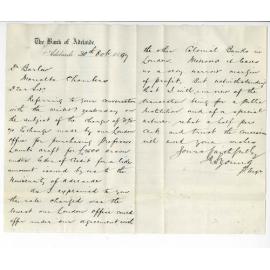 The Bank of Adelaide,
Adelaide 30th Oct 1889
Dr Barlow
Marietta Chambers
Dear Sir,
Referring to your conversation
with the writer yesterday on
the subject of the charge of
Exchange made by our London
office for purchasing Professor
Lamb's draft for £ drawn
under Letter of Credit for a like
amount issued by us to the
University of Adelaide
As I explained to you
the rate charged was the
lowest our London Office could
offer under our agreement with
the other Colonial Banks in
London. Moreover it leaves
us a very narrow margin
of profit. But notwithstanding
that I will in view of the
transaction being for a Public
Institution and of a special
nature rebate a half per
cent and trust the concession
will meet your wishes
Yours faithfully